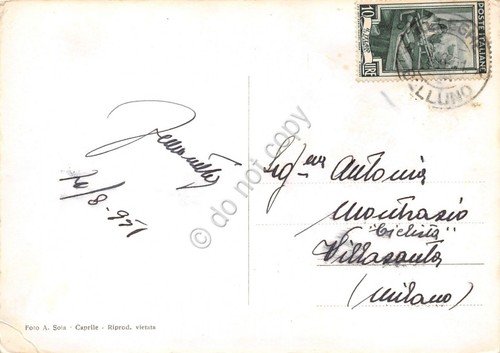 10
LIRE
POSTE ITALIANE
BELLUNO
16/8-951
Sig.na Antonia
Montrasio
"Ciclista"
Villasanta
(Milano)
Foto A. Sola - Caprile - Riprod. vietata
© do not copy